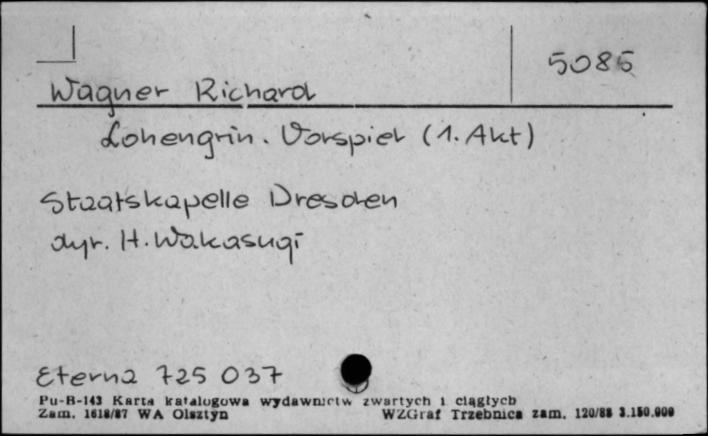 5085
Wagner Richard
Lohengrin. Vorspiel (1. Akt)
Staatskapelle Dresden
dyr. H. Wakasugi
Eterna 725 037
Pu-B-143 Karta katalogowa wydawnictw zwartych i ciągłych
Zam. 1618/87 WA Olsztyn WZGraf Trzebnica zam. 120/88 3.150.000